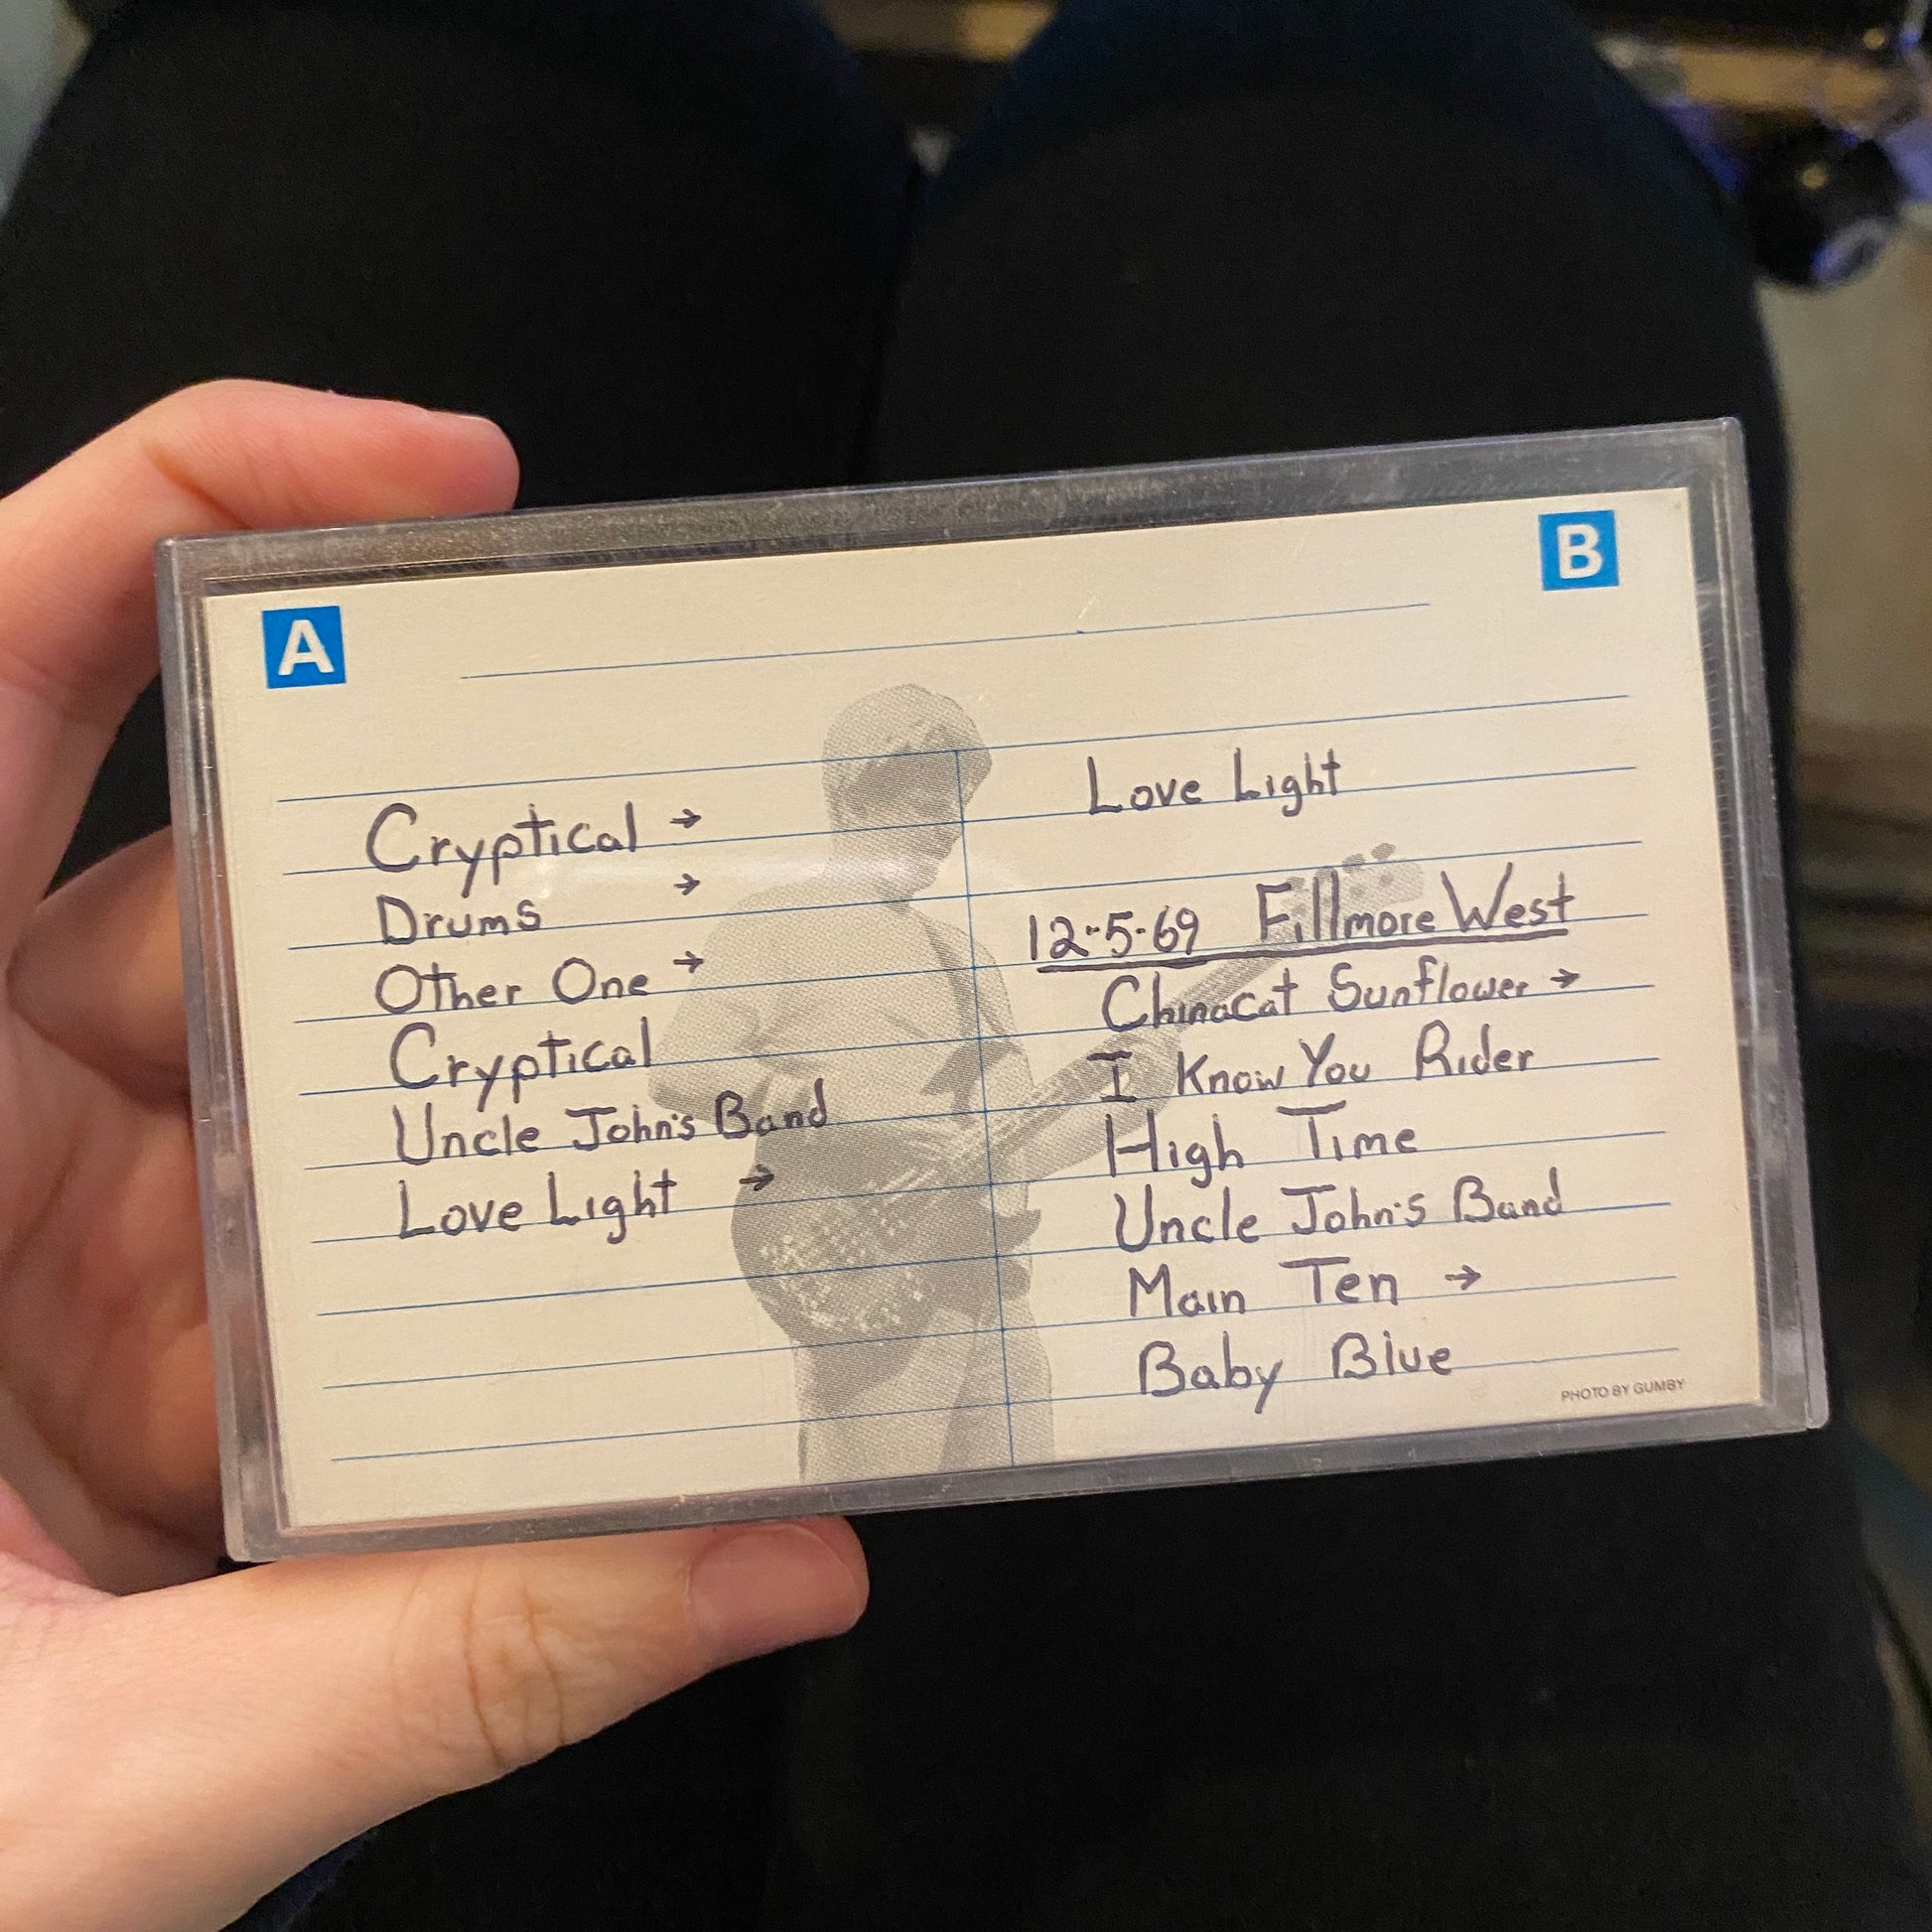 A
Cryptical →
Drums →
Other One →
Cryptical
Uncle John's Band
Love Light →
B
Love Light
12-5-69 Fillmore West
Chinacat Sunflower →
I Know You Rider
High Time
Uncle John's Band
Main Ten →
Baby Blue
PHOTO BY GUMBY